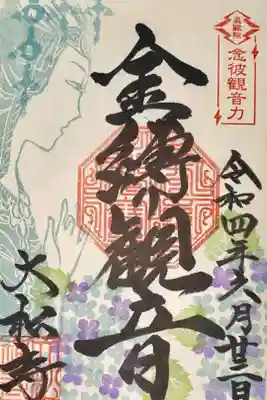 念彼観音力
令和四年六月廿二日
金縛り観音
大松寺